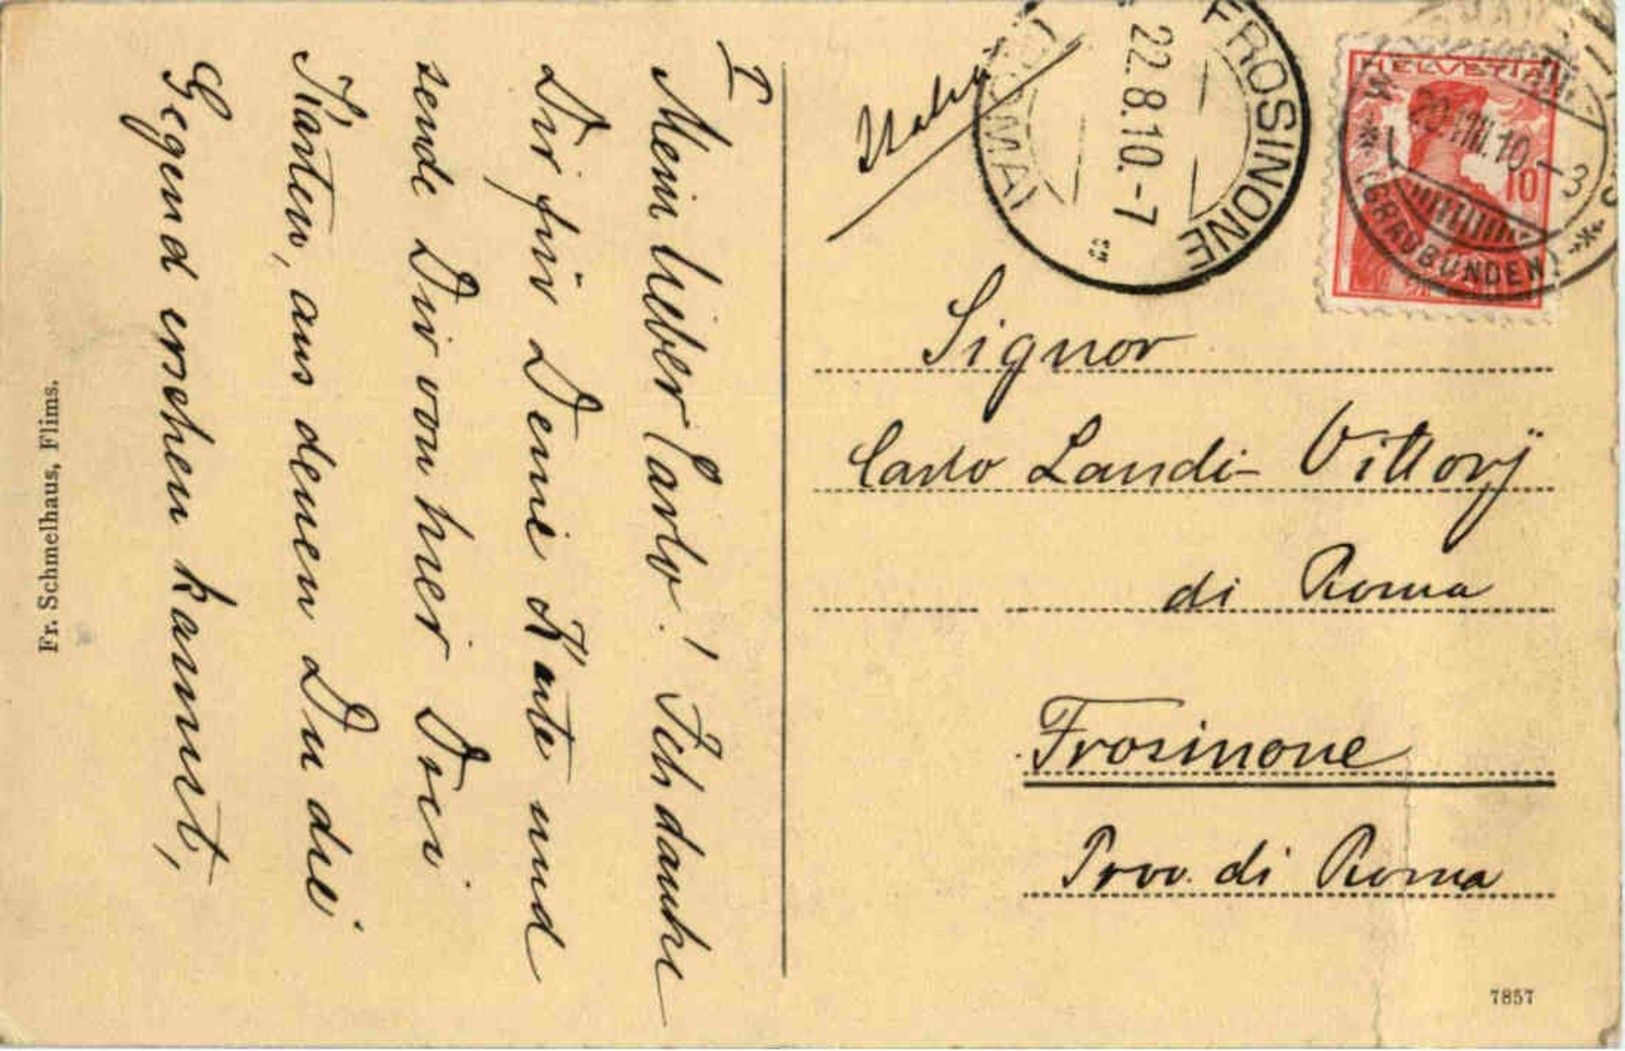 I
Mein lieber Carlo! Ich danke
Dir für Deine Karte und
sende Dir von hier Drei
Karten, aus denen Du die
Gegend ersehen kannst,
Fr. Schmelhaus, Flims.
Italia
FROSINONE
22.8.10.-7
FROSINONE
HELVETIA
10
20.VIII.10.-3
(GRAUBÜNDEN)
Signor
Carlo Landi-Vittorj
di Roma
Frosinone
Prov. di Roma
7857